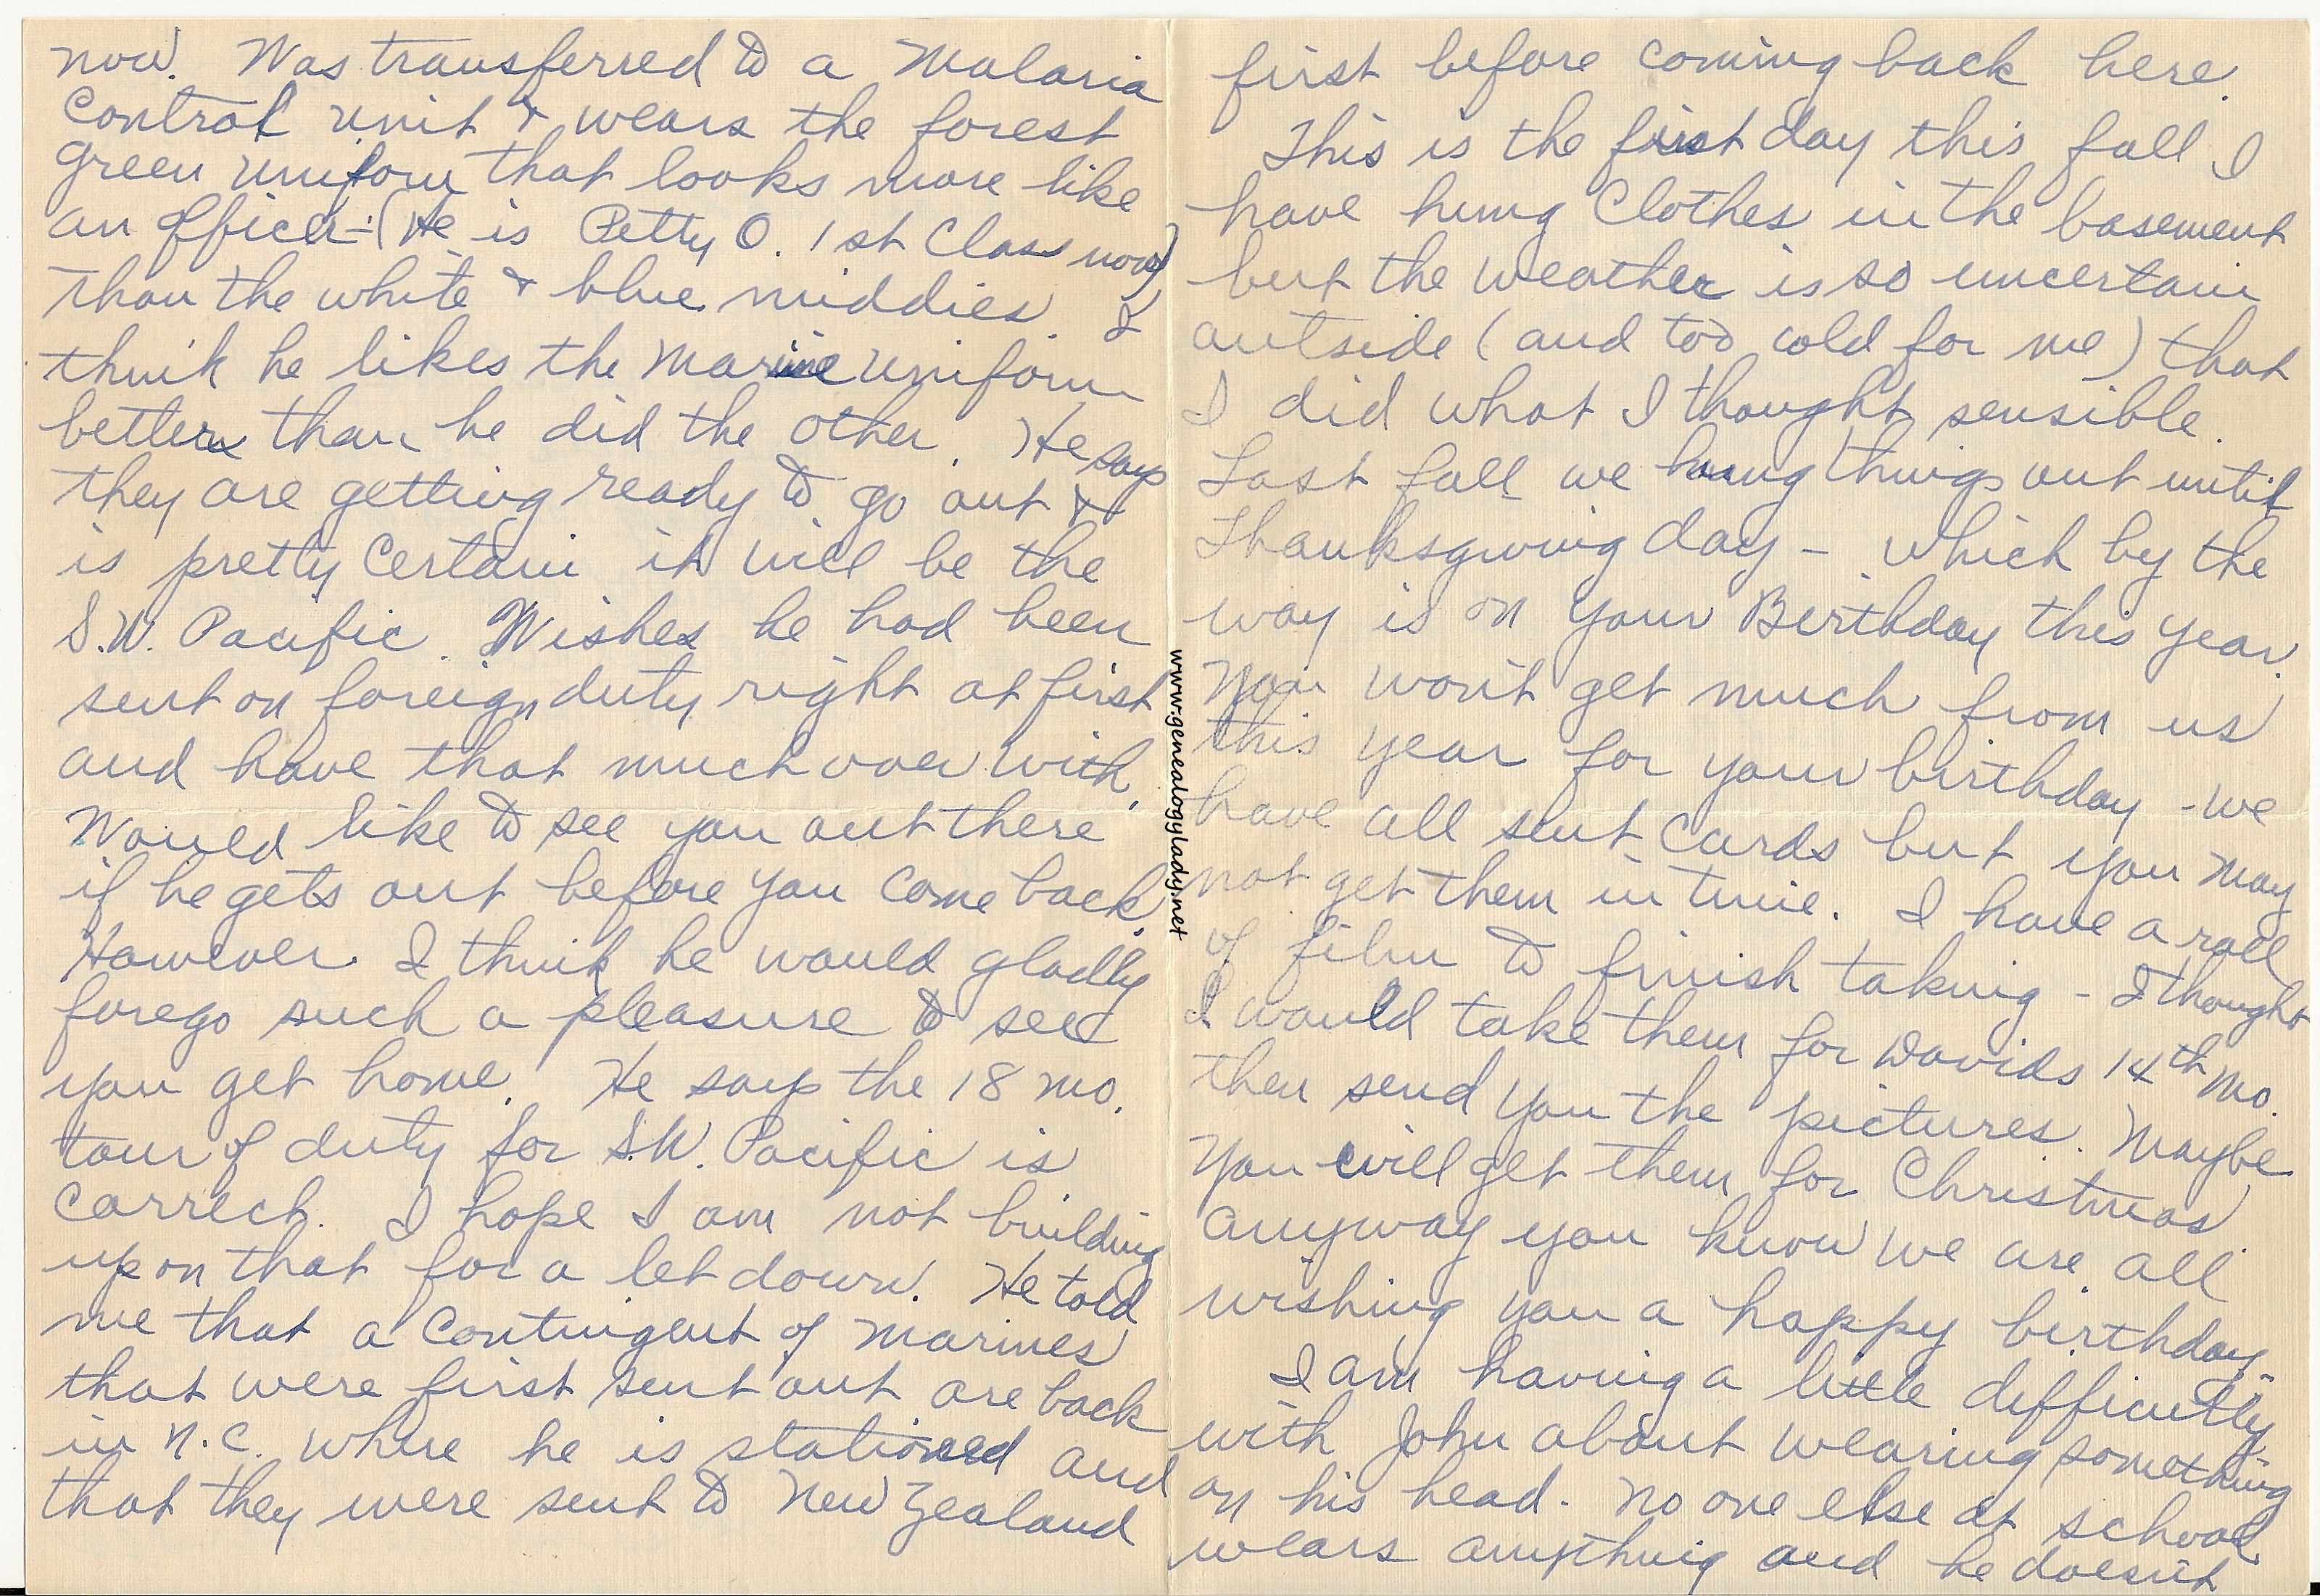 now. Was transferred to a Malaria
Control unit & wears the forest
green uniform that looks more like
an officer - (He is Petty O. 1st Class now)
than the white & blue middies. I
think he likes the Marine uniform
better than he did the other. He says
they are getting ready to go out &
is pretty certain it will be the
S.W. Pacific. Wishes he had been
sent on foreign duty right at first
and have that much over with.
Would like to see you out there
if he gets out before you come back.
However I think he would gladly
forego such a pleasure to see
you get home. He says the 18 mo.
tour of duty for S.W. Pacific is
correct. I hope I am not building
upon that for a let down. He told
me that a contingent of marines
that were first sent out are back
in N.C. where he is stationed and
that they were sent to New Zealand
www.genealogylady.net
first before coming back here.
This is the first day this fall I
have hung clothes in the basement
but the weather is so uncertain
outside (and too cold for me) that
I did what I thought sensible.
Last fall we hung things out until
Thanksgiving day - which by the
way is on your Birthday this year.
You won't get much from us
this year for your birthday - we
have all sent cards but you may
not get them in time. I have a roll
of film to finish taking - I thought
I would take them for Davids 14th mo.
then send you the pictures. Maybe
you will get them for Christmas.
Anyway you know we are all
wishing you a happy birthday.
I am having a little difficulty
with John about wearing something
on his head. No one else at school
wears anything and he doesn't